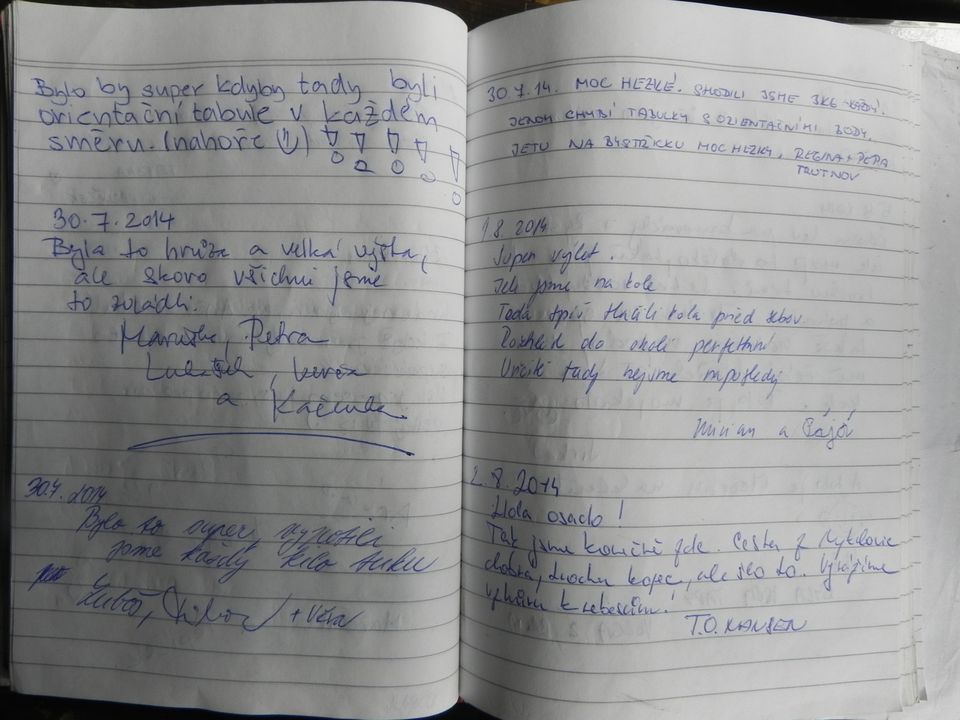 Bylo by super kdyby tady byli
orientační tabule v každém
směru. (nahoře
30.7.2014
Byla to hrůza a velká výška,
ale skoro všichni jsme
to zvládli.
Maruška, Petra
a Kačenka
30.7.2014
Bylo to super, vypotili
jsme každý kilo tuku
+ Věra
30.7.14. MOC HEZKÉ. SHODILI JSME 3KG KAŽDÝ.
JENOM CHYBÍ TABULKY S ORIENTAČNÍMI BODY.
JETU NA BYSTŘICKU MOC HEZKY. REGINA + PEPA
TRUTNOV
1.8.2014
Super výlet.
Jeli jsme na kole
Teda spíš tlačili kola před sebou
Rozhled do okolí perfektní
Určitě tady nejsme naposledy
Mirian a Pája
2.8.2014
Hola osado!
Tak jsme konečně zde. Cesta z
dobrá, trochu kopec, ale šlo to. Vyrážíme
vzhůru k nebesům!
T.O. HANSEN